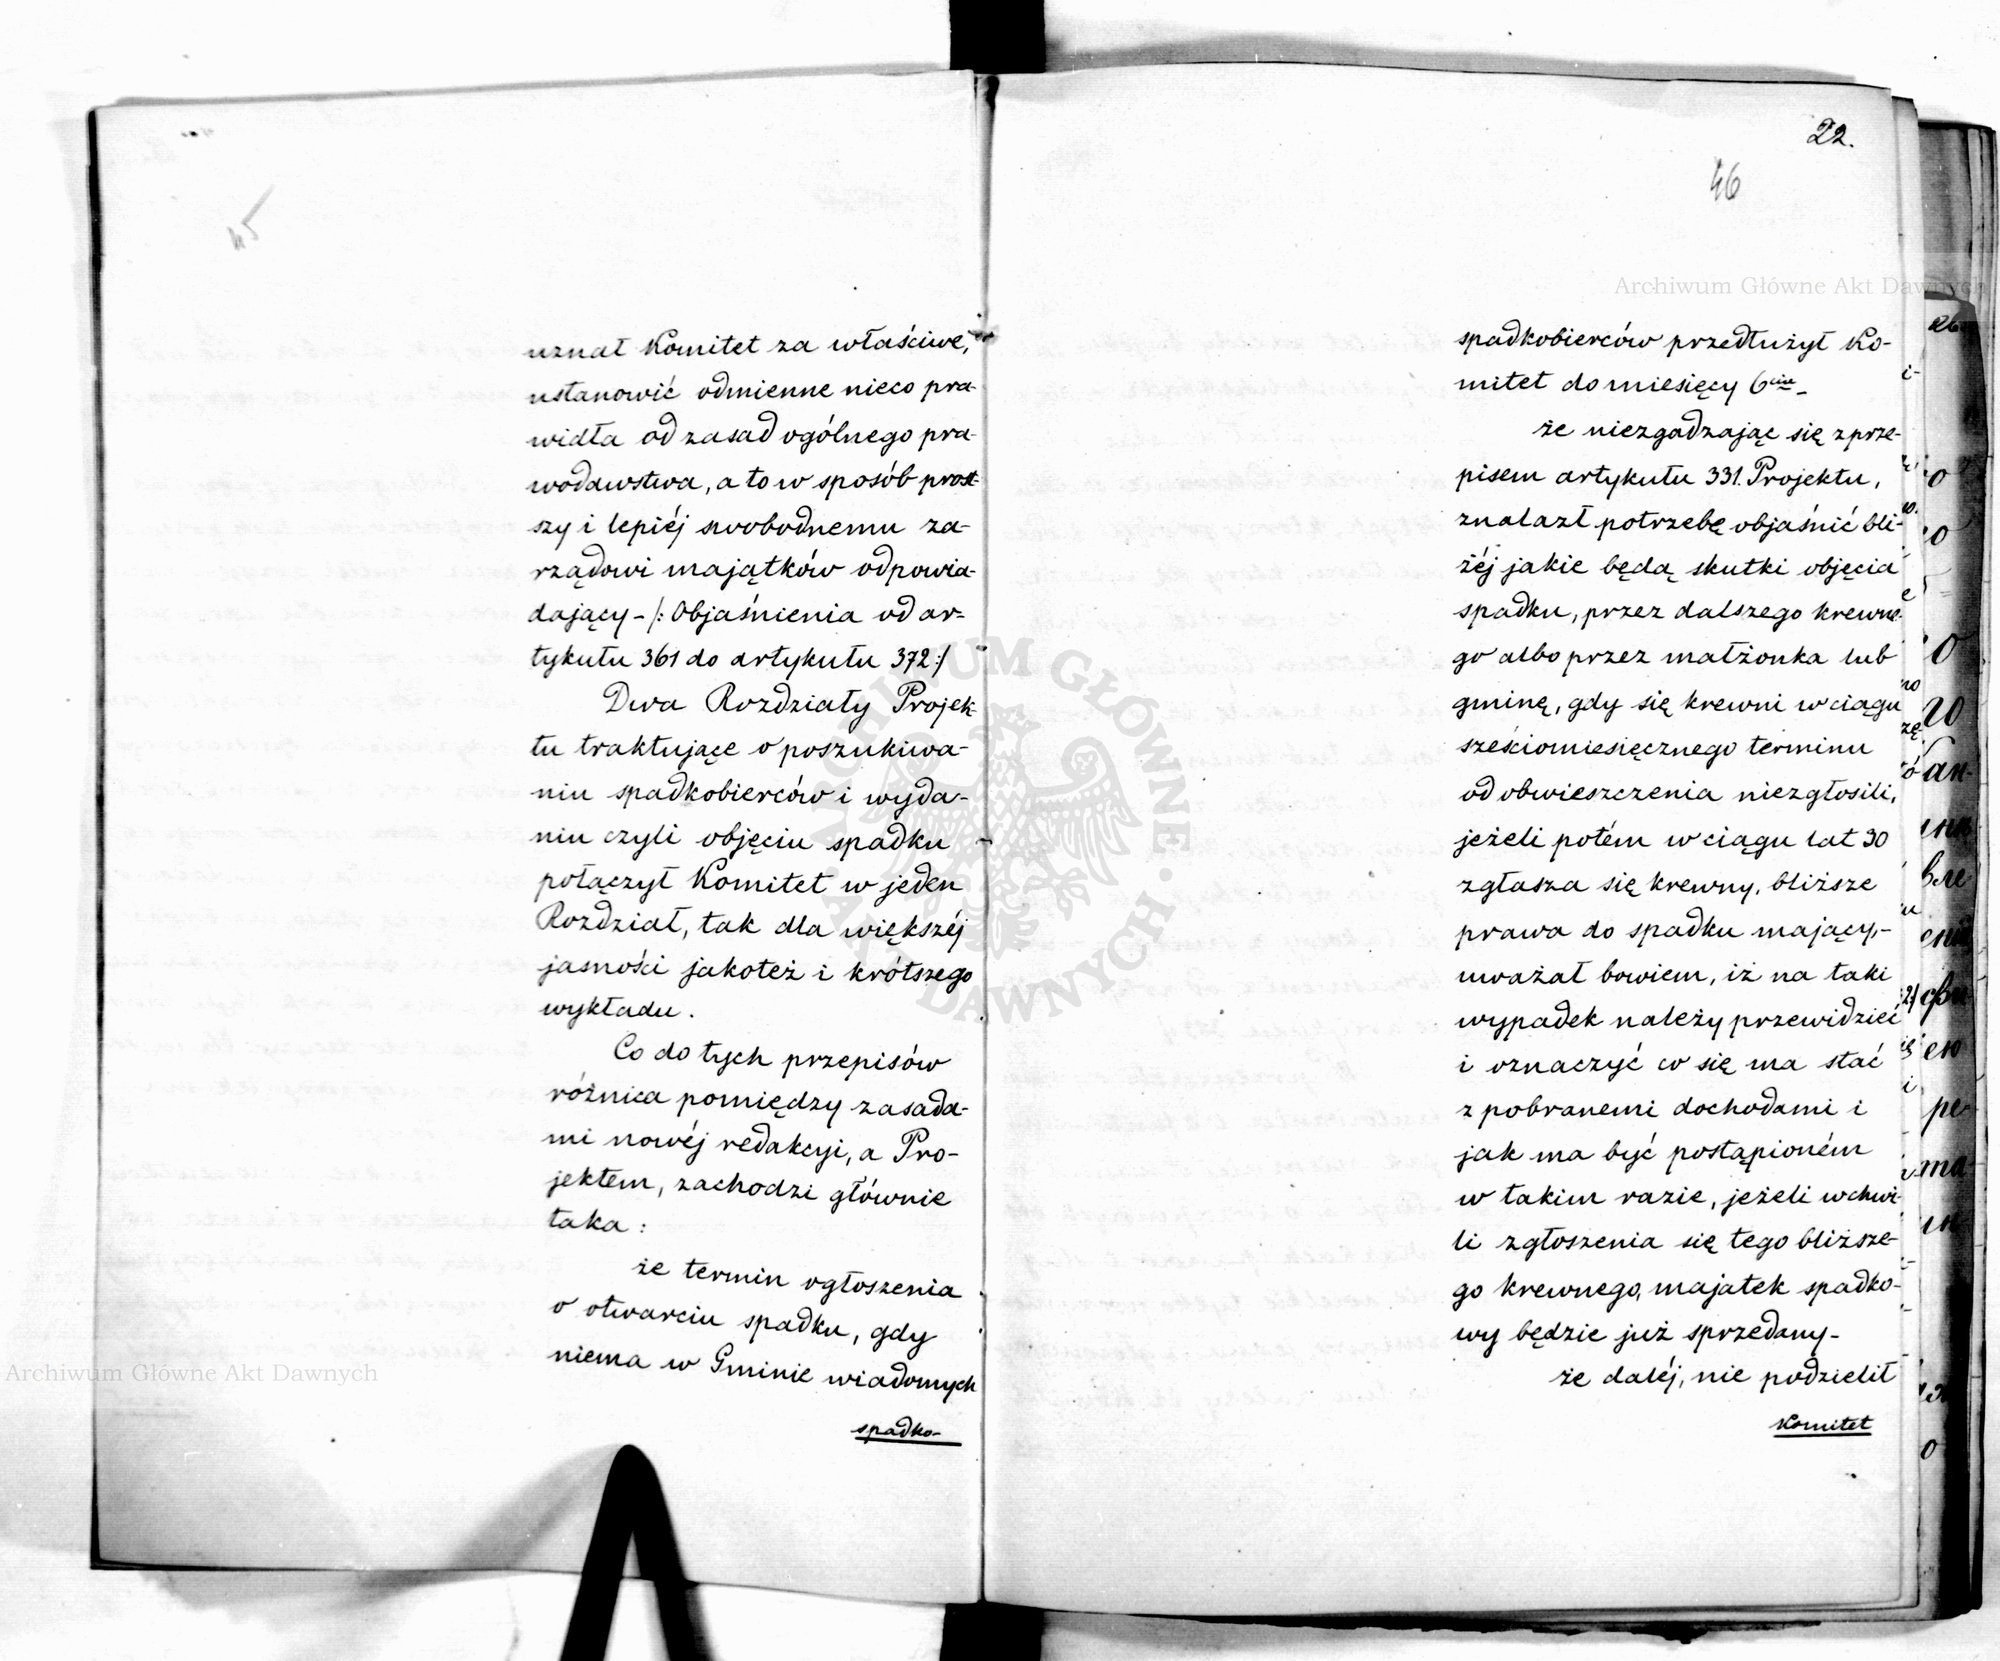 45
uznał Komitet za właściwe,
ustanowić odmienne nieco pra-
widła od zasad ogólnego pra-
wodawstwa, a to w sposób prost-
szy i lepiéj swobodnemu za-
rządowi majątków odpowia-
dający - /: Objaśnienia od ar-
tykułu 361 do artykułu 372 :/
Dwa Rozdziały Projek-
tu traktujące o poszukiwa-
niu spadkobierców i wyda-
niu czyli objęciu spadku
połączył Komitet w jeden
Rozdział, tak dla większéj
jasności jakoteż i krótszego
wykładu.
Co do tych przepisów
różnica pomiędzy zasada-
mi nowéj redakcyi, a Pro-
jektem, zachodzi głównie
taka:
że termin ogłoszenia
o otwarciu spadku, gdy
niema w Gminie wiadomych
spadko-
22.
46
spadkobierców przedłużył Ko-
mitet do miesięcy 6ciu -
że niezgadzając się z prze-
pisem artykułu 331. Projektu,
znalazł potrzebę objaśnić bli-
żéj jakie będą skutki objęcia
spadku, przez dalszego krewne-
go albo przez małżonka lub
gminę, gdy się krewni w ciągu
sześciomiesięcznego terminu
od obwieszczenia niezgłosili,
jeżeli potém w ciągu lat 30
zgłasza się krewny, bliższe
prawa do spadku mający, -
uważał bowiem, iż na taki
wypadek należy przewidzieć
i oznaczyć co się ma stać
z pobranemi dochodami i
jak ma być postąpioném
w takim razie, jeżeli w chwi-
li zgłoszenia się tego bliższe-
go krewnego, majatek spadko-
wy będzie już sprzedany -
że daléj, nie podzielił
Komitet
Archiwum Główne Akt Dawnych
Archiwum Główne Akt Dawnych
ARCHIWUM GŁÓWNE AKT DAWNYCH